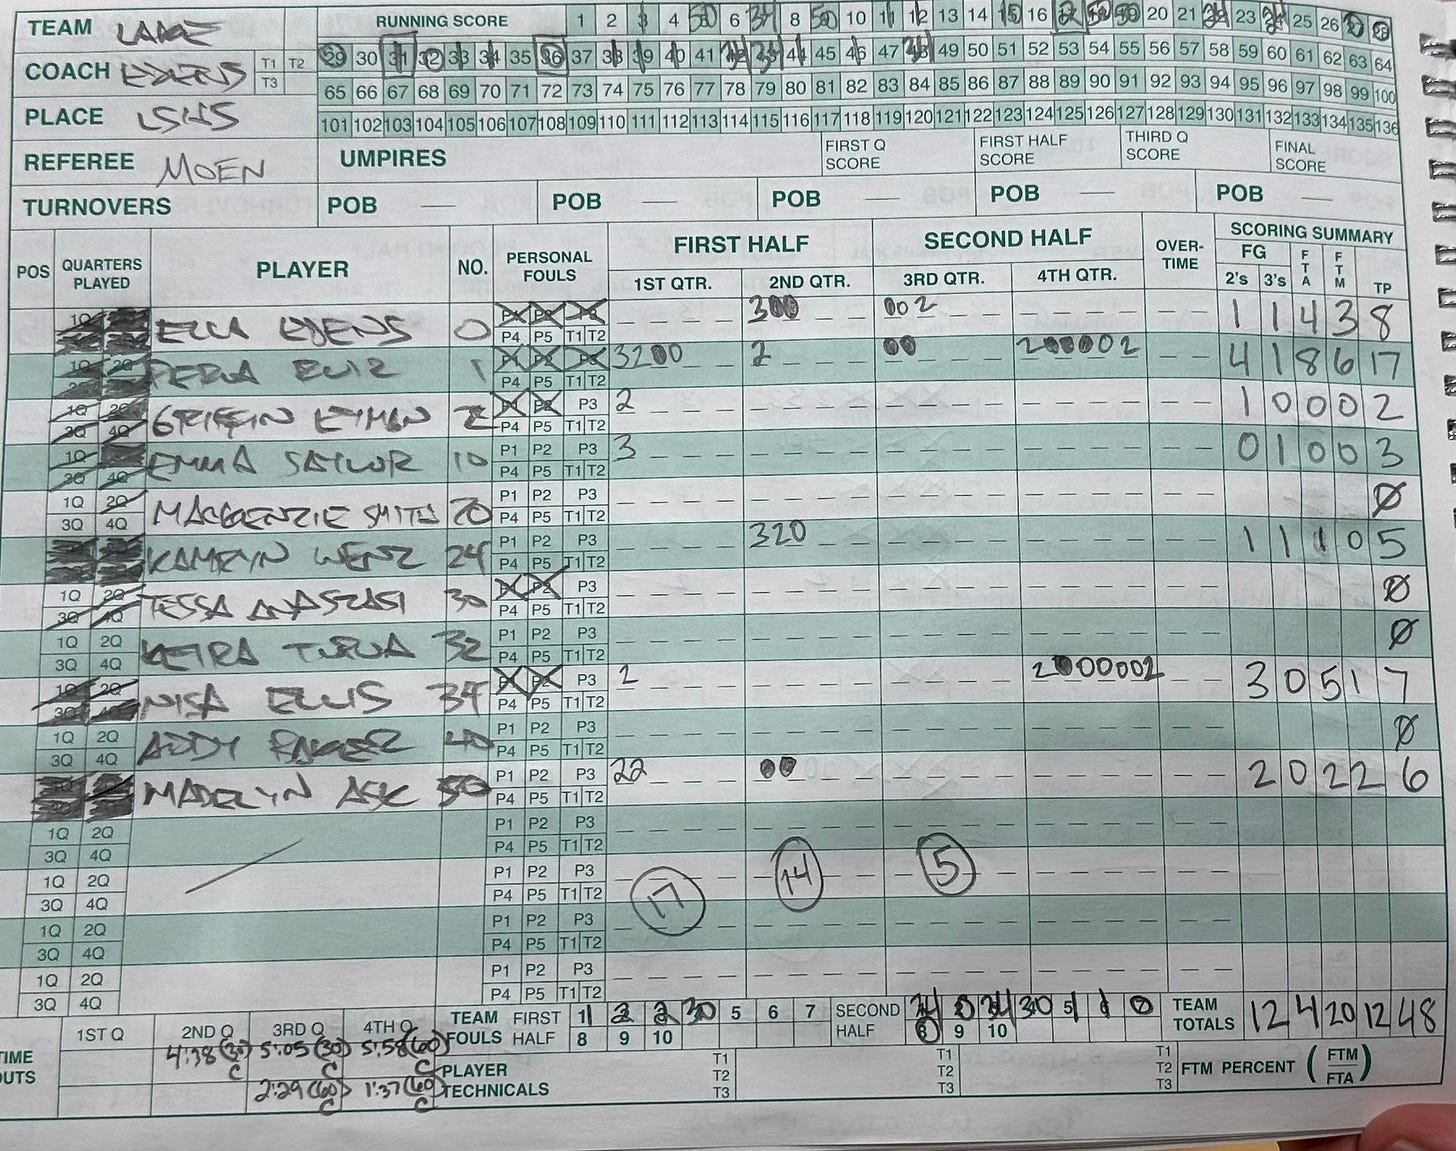 TEAM LAKE RUNNING SCORE 1 2 3 4 6 8 10 11 12 13 14 15 16 20 21 23 25 26
COACH EVENS T1 T2 T3 30 31 32 33 34 35 36 37 38 39 40 41 44 45 46 47 49 50 51 52 53 54 55 56 57 58 59 60 61 62 63 64
65 66 67 68 69 70 71 72 73 74 75 76 77 78 79 80 81 82 83 84 85 86 87 88 89 90 91 92 93 94 95 96 97 98 99 100
PLACE LSHS 101 102 103 104 105 106 107 108 109 110 111 112 113 114 115 116 117 118 119 120 121 122 123 124 125 126 127 128 129 130 131 132 133 134 135 136
REFEREE MOEN UMPIRES FIRST Q SCORE FIRST HALF SCORE THIRD Q SCORE FINAL SCORE
TURNOVERS POB POB POB POB POB
POS QUARTERS PLAYED PLAYER NO. PERSONAL FOULS FIRST HALF SECOND HALF OVER-TIME SCORING SUMMARY
1ST QTR. 2ND QTR. 3RD QTR. 4TH QTR. FG 2's 3's FTA FTM TP
ELLA 0 P4 P5 T1 T2 300 002 1 1 4 3 8
1 P4 P5 T1 T2 3200 2 00 200002 4 1 8 6 17
GRIFFIN 2 P3 P4 P5 T1 T2 2 1 0 0 0 2
EMMA SAYLOR 10 P1 P2 P3 P4 P5 T1 T2 3 0 1 0 0 3
1Q 2Q 3Q 4Q MACKENZIE SMITH 20 P1 P2 P3 P4 P5 T1 T2 0
KAMRYN WENZ 24 P1 P2 P3 P4 P5 T1 T2 320 1 1 1 0 5
1Q 2Q 3Q 4Q TESSA 30 P3 P4 P5 T1 T2 0
1Q 2Q 3Q 4Q KEIRA 32 P1 P2 P3 P4 P5 T1 T2 0
NISA ELLIS 34 P3 P4 P5 T1 T2 2 2000002 3 0 5 1 7
1Q 2Q 3Q 4Q ADDY 40 P1 P2 P3 P4 P5 T1 T2 0
MADELYN ASK 50 P1 P2 P3 P4 P5 T1 T2 22 00 2 0 2 2 6
1Q 2Q 3Q 4Q P1 P2 P3 P4 P5 T1 T2
1Q 2Q 3Q 4Q P1 P2 P3 P4 P5 T1 T2 17 14 5
1Q 2Q 3Q 4Q P1 P2 P3 P4 P5 T1 T2
1Q 2Q 3Q 4Q P1 P2 P3 P4 P5 T1 T2
1ST Q 2ND Q 3RD Q 4TH Q TEAM FOULS FIRST HALF 1 2 2 30 5 6 7 8 9 10 SECOND HALF 34 0 34 30 1 1 0 9 10 TEAM TOTALS 12 4 20 12 48
4:38 (30) C 5:05 (30) C 5:58 (60) C
2:29 (60) C 1:37 (60) C PLAYER TECHNICALS T1 T2 T3 T1 T2 T3 T1 T2 T3 FTM PERCENT (FTM FTA)